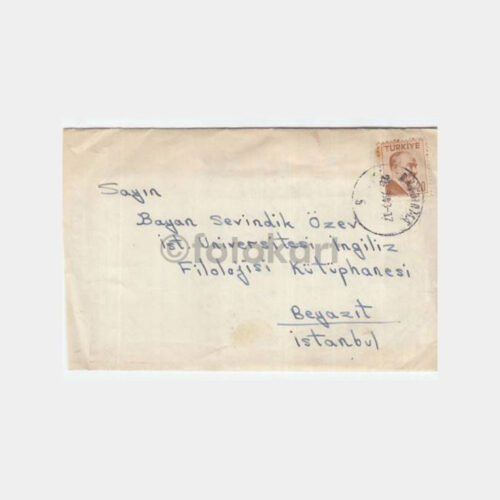 TÜRKİYE
Sayın
Bayan Sevindik Özev
ist. Üniversitesi İngiliz
©fotokart
Filolojisi Kütüphanesi
Beyazıt
istanbul